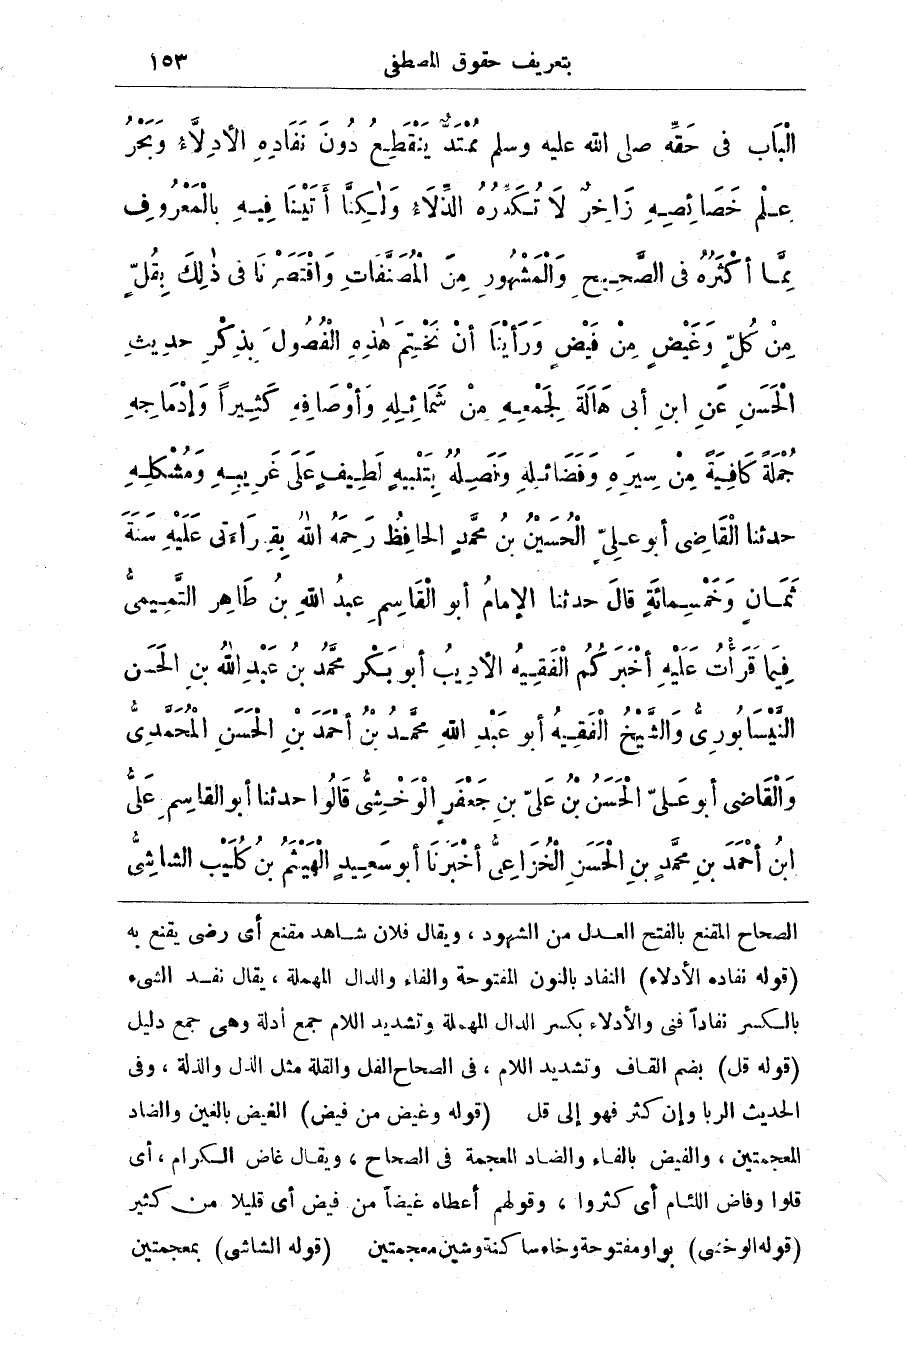 بتعريف حقوق المصطفى ١٥٣
الْبَاب فى حَقِّه صلى الله عليه وسلم مُمْتَدٌّ يَنْقَطِعُ دُونَ نَفَادِهِ الأَدِلَّاءُ وَبَحْرُ
عِلْمِ خَصَائِصِهِ زَاخِرٌ لَا تُكَدِّرُهُ الدِّلَاءُ وَلٰكِنَّا أَتَيْنَا فِيهِ بالْمَعْرُوفِ
مِمَّا أَكْثَرُهُ فى الصَّحِيحِ وَالْمَشْهُورِ مِنَ الْمُصَنَّفَاتِ وَاقْتَصَرْنَا فى ذٰلِكَ بِقُلٍّ
مِنْ كُلٍّ وَغَيْضٍ مِنْ فَيْضٍ وَرَأَيْنَا أَنْ نَخْتِمَ هٰذِهِ الْفُصُولَ بِذِكْرِ حديثِ
الْحَسَنِ عَنِ ابنِ أبى هَالَةَ لِجَمْعِهِ مِنْ شَمَائِلِهِ وَأَوْصَافِهِ كَثِيراً وَإِدْمَاجِهِ
جُمْلَةً كَافِيَةً مِنْ سِيَرِهِ وَفَضَائِلِهِ وَنَصِلُهُ بِتَنْبِيهٍ لَطِيفٍ عَلَى غَرِيبِهِ وَمُشْكِلِهِ
حدثنا الْقَاضِى أبو عَلِىٍّ الْحُسَيْنُ بنُ مُحمَّدٍ الحافِظُ رَحِمَهُ اللهُ بِقِرَاءَتى عَلَيْهِ سَنَةَ
ثَمَانٍ وَخَمْسِمائَةٍ قالَ حدثنا الإمامُ أبو الْقَاسِمِ عبدُ اللهِ بنُ طَاهِر التَّمِيمىُّ
فِيَما قَرَأْتُ عَلَيْهِ أَخْبَرَكُم الْفَقِيهُ الأَدِيبُ أبو بَكْر محمَّدُ بنُ عَبْدِ اللهِ بنِ الحَسَن
النَّيْسَابُورِىُّ وَالشَّيْخُ الْفَقِيهُ أبو عَبْدِ اللهِ محمَّدُ بْنُ أَحْمَدَ بْنِ الْحَسَنِ الْمُحَمَّدِىُّ
وَالْقَاضِى أبو عَلِىّ الْحَسَنُ بْنُ عَلِىِّ بنِ جَعْفَرٍ الْوَخْشِىُّ قَالُوا حدثنا أبو القاسِمِ عَلِىُّ
ابنُ أَحْمَدَ بنِ محمَّدِ بنِ الْحَسَنِ الْخُزَاعِىُّ أَخْبَرَنَا أبو سَعِيدٍ الْهَيْثَمُ بنُ كُلَيْبٍ الشاشِىُّ
الصحاح المقنع بالفتح العدل من الشهود ، ويقال فلان شاهد مقنع أى رضى يقنع به
(قوله نفاده الأدلاء) النفاد بالنون المفتوحة والفاء والدال المهملة ، يقال نفد الشىء
بالكسر نفاداً فنى والأدلاء بكسر الدال المهملة وتشديد اللام جمع أدلة وهى جمع دليل
(قوله قل) بضم القاف وتشديد اللام ، فى الصحاح القل والقلة مثل الذل والذلة ، وفى
الحديث الربا وإن كثر فهو إلى قل (قوله وغيض من فيض) الغيض بالغين والضاد
المعجمتين ، والفيض بالفاء والضاد المعجمة فى الصحاح ، ويقال غاض الكرام ، أى
قلوا وفاض اللئام أى كثروا ، وقولهم أعطاه غيضاً من فيض أى قليلا من كثير
(قوله الوخشى) بواو مفتوحة وخاء ساكنة وشين معجمتين (قوله الشاشى) بمعجمتين